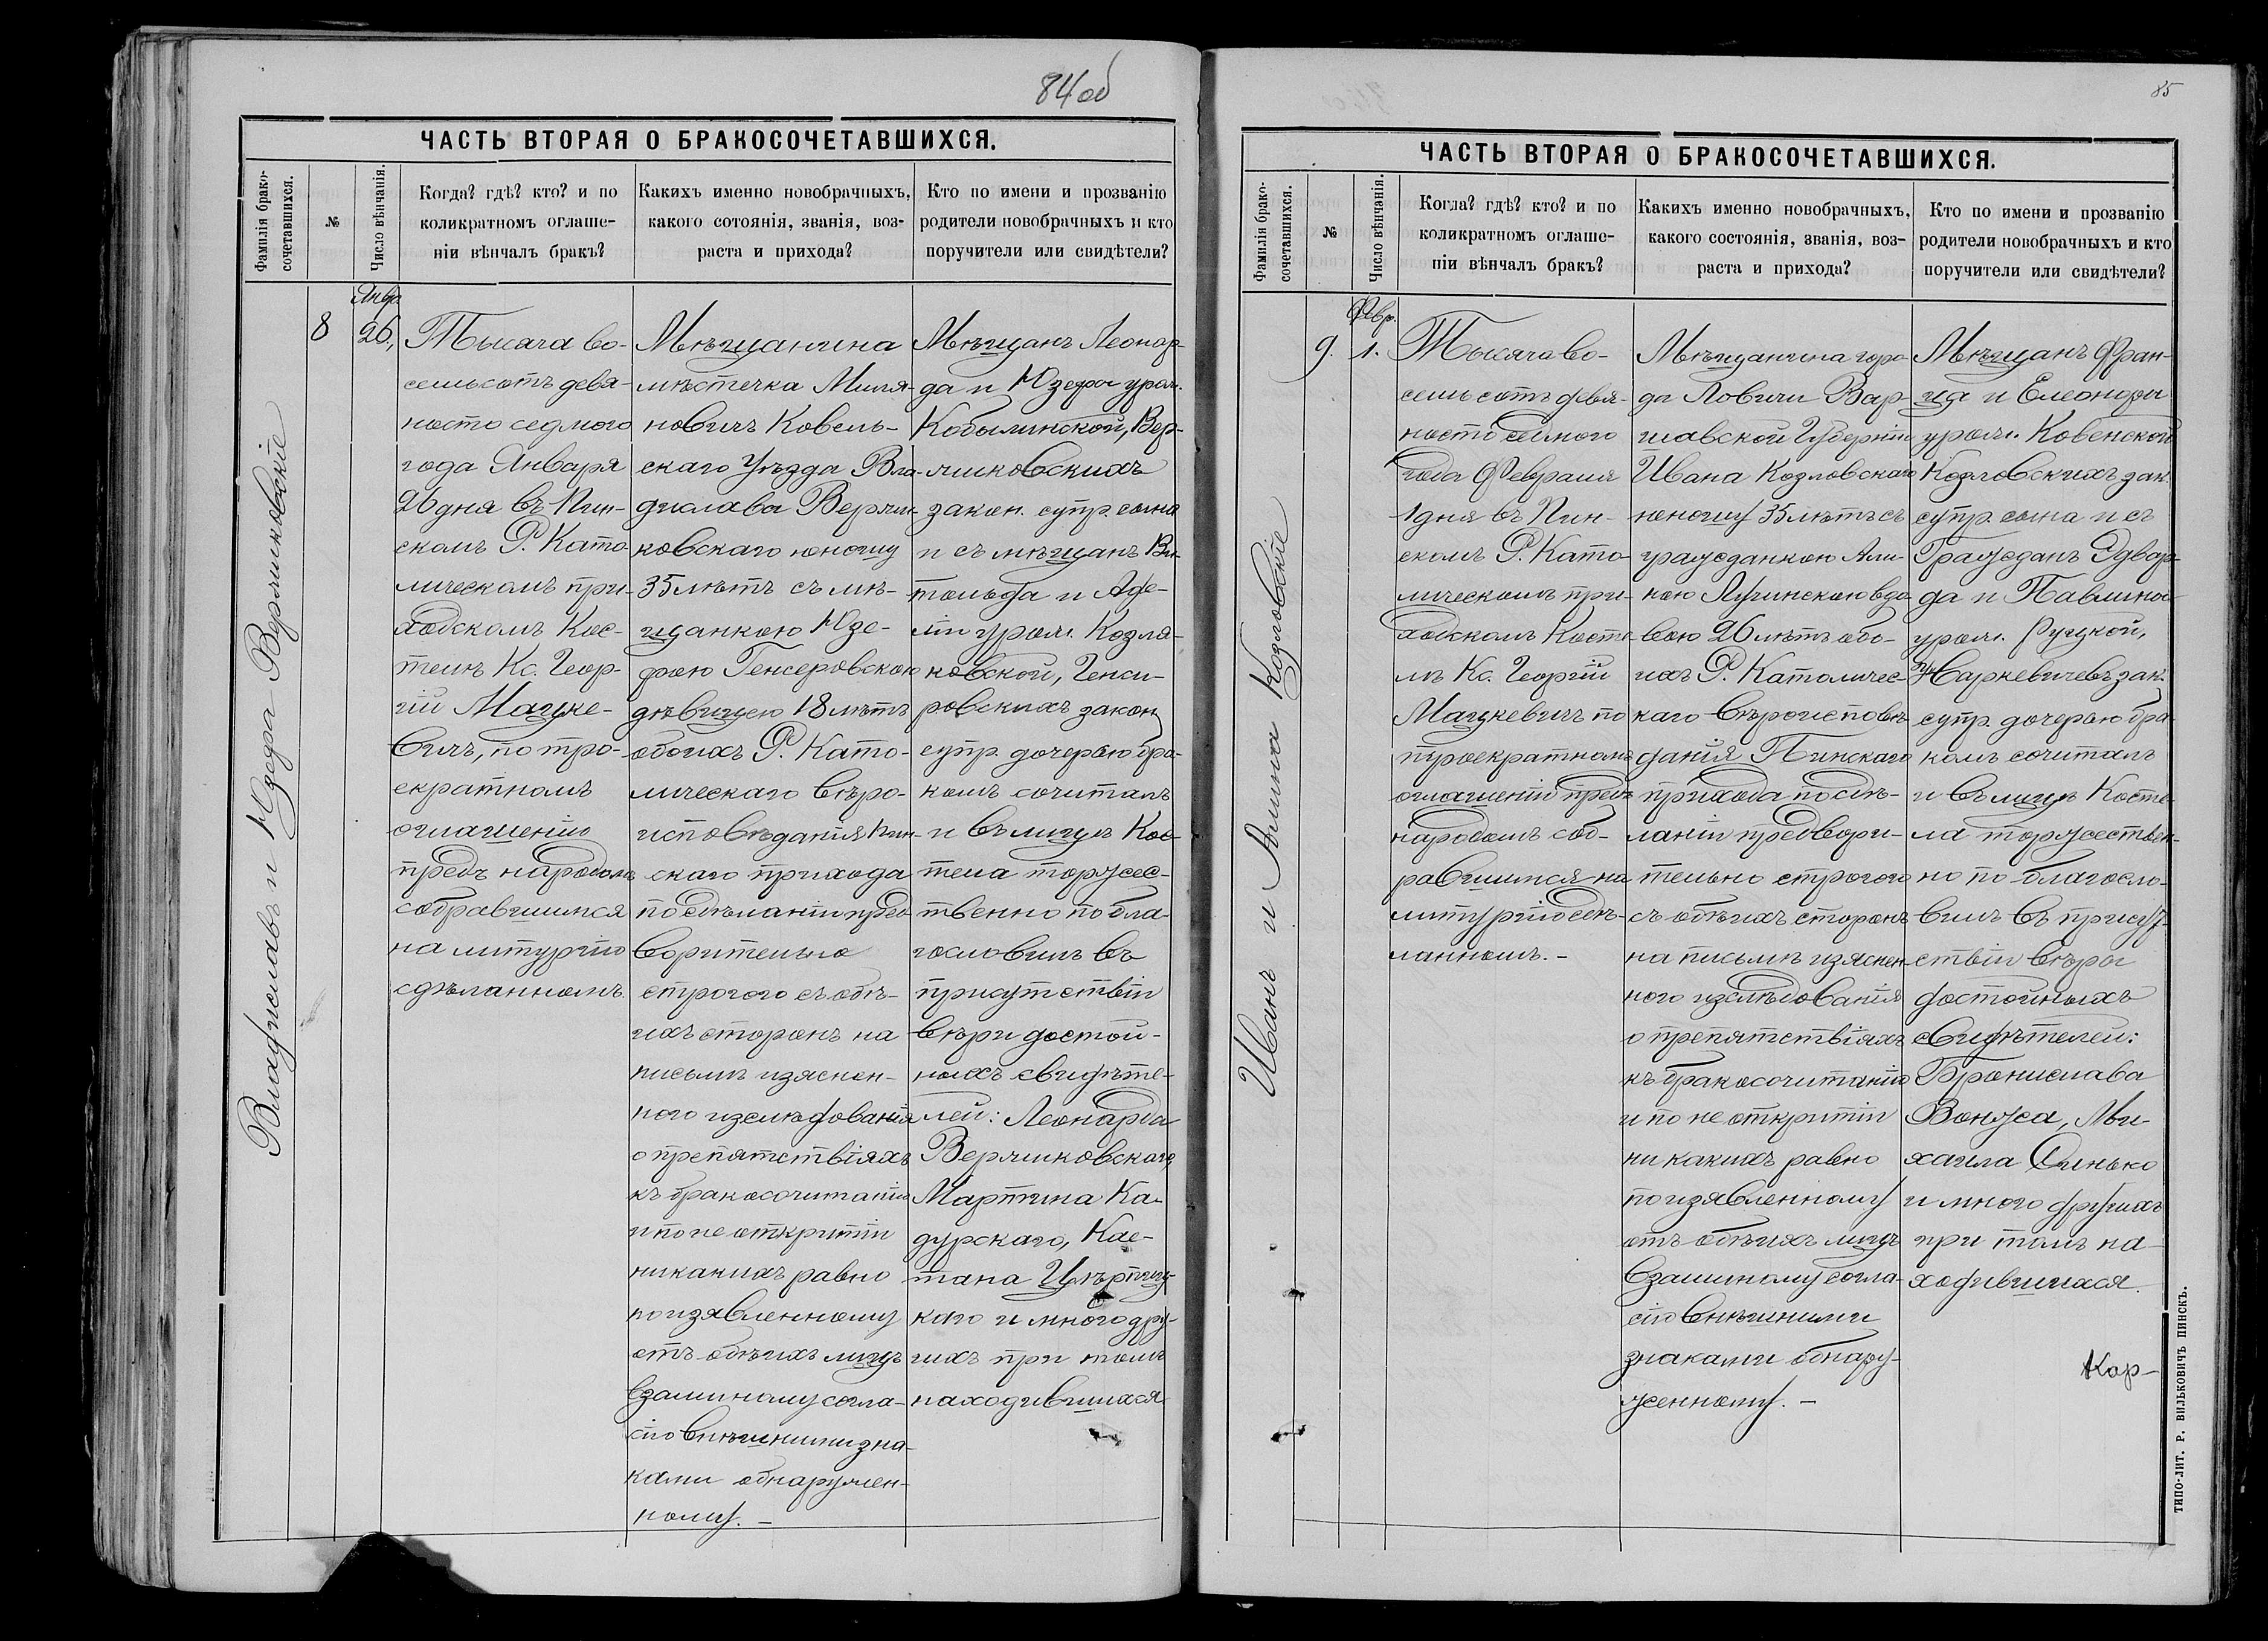 84 об
ЧАСТЬ ВТОРАЯ О БРАКОСОЧЕТАВШИХСЯ.
Фамилія брако-
сочетавшихся.
№
Число вѣнчанія.
Когда? гдѣ? кто? и по
коликратномъ оглаше-
ніи вѣнчалъ бракъ?
Какихъ именно новобрачныхъ,
какого сотоянія, званія, воз-
раста и прихода?
Кто по имени и прозванію
родители новобрачныхъ и кто
поручители или свидѣтели?
Владиславъ и Юзефа Вержиковскіе
8
Янвр.
26,
Тысяча во-
семьсотъ девя-
носто седмого
года Января
26 дня въ Пин-
скомъ Р. Като-
лическомъ при-
ходскомъ Кос-
телѣ Кс. Геор-
гій Мацке-
вичъ, по тро-
екратномъ
оглашенію
предъ народомъ
собравшимся
на литургію
сдѣланномъ.
Мѣщанина
мѣстечка Миля-
новичъ Ковель-
скаго Уѣзда Вла-
дислава Вержи-
ковскаго юношу
35 лѣтъ съ мѣ-
щанкою Юзе-
фою Генсеровскою
дѣвицею 18 лѣтъ
обоихъ Р. Като-
лическаго вѣро-
исповѣданія Пин-
скаго прихода
по сдѣланіи пред-
ворительно
строгого съ обѣ-
ихъ сторонъ на
письмѣ изяснен-
ного изслѣдованія
о препятствіяхъ
къ бракосочитанію
и по не открытіи
никакихъ равно
по изявленному
отъ обѣихъ лицъ
взаимному согла-
сію внѣшними зна-
ками обнаружен-
ному. -
Мѣщанъ Леонар-
да и Юзефы урож.
Кобылинской, Вер-
жиковскихъ
закон. супр. сына
и съ мѣщанъ Ви-
тольда и Аде-
ли урож. Козля-
ковской, Генси-
ровскихъ закон
супр. дочерью бра-
комъ сочиталъ
и въ лицѣ Кос-
тела торжес-
твенно по бла-
гословилъ въ
присутствіи
вѣри достой-
ныхъ свидѣте-
лей: Леонарда
Вержиковскаго,
Мартина Ка-
дурскаго, Кае-
тана
каго и много дру-
гихъ при томъ
находившихся
85
ЧАСТЬ ВТОРАЯ О БРАКОСОЧЕТАВШИХСЯ.
Фамилія брако-
сочетавшихся.
№
Число вѣнчанія.
Когда? гдѣ? кто? и по
коликратномъ оглаше-
ніи вѣнчалъ бракъ?
Какихъ именно новобрачныхъ,
какого состоянія, званія, воз-
раста и прихода?
Кто по имени и прозванію
родители новобрачныхъ и кто
поручители или свидѣтели?
Иванъ и Алина Козловскіе
9.
Февр.
1.
Тысяча во-
семьсотъ девя-
носто седмого
года Февраля
1 дня въ Пин-
скомъ Р. Като-
лическомъ при-
ходскомъ Косте-
лѣ Кс. Георгій
Мацкевичъ по
троекратномъ
оглашеніи предъ
народомъ соб-
равшимся на
литургію сдѣ-
ланномъ. -
Мѣщанина горо-
да Ловичи Вар-
шавской Губерніи
Ивана Козловскаго
юношу 35 лѣтъ съ
гражданкою Али-
ною Лугинскою вдо-
вою 26 лѣтъ обо-
ихъ Р. Католичес-
каго вѣроисповѣ-
данія Пинскаго
прихода по сдѣ-
ланіи предвори-
тельно строгого
съ обѣихъ сторонъ
на письмѣ изяснен-
ного изслѣдованія
о препятствіяхъ
къ бракосочитанію
и по не открытіи
ни какихъ равно
по изявленному
отъ обѣихъ лицъ
взаимному согла-
сію внѣшними
знаками обнару-
женному. -
Мѣщанъ Фран-
ца и Елеоноры
урож. Ковенской
Козловскихъ зак.
супр. сына и съ
Гражданъ Эдвар-
да и Павлины
урож. Руцкой,
Наркевичевъ зак.
супр. дочерью бра-
комъ сочиталъ
и въ лицѣ Косте-
ла торжествен-
но по благосло-
вилъ въ присут-
ствіи вѣры
достойныхъ
свидѣтелей:
Бронислава
Вонжса, Ми-
хаила Синько
и много другихъ
при томъ на-
ходившихся.
Кор-
ТИПО-ЛИТ. Р. ВИЛЬКОВИЧЪ ПИНСКЪ.